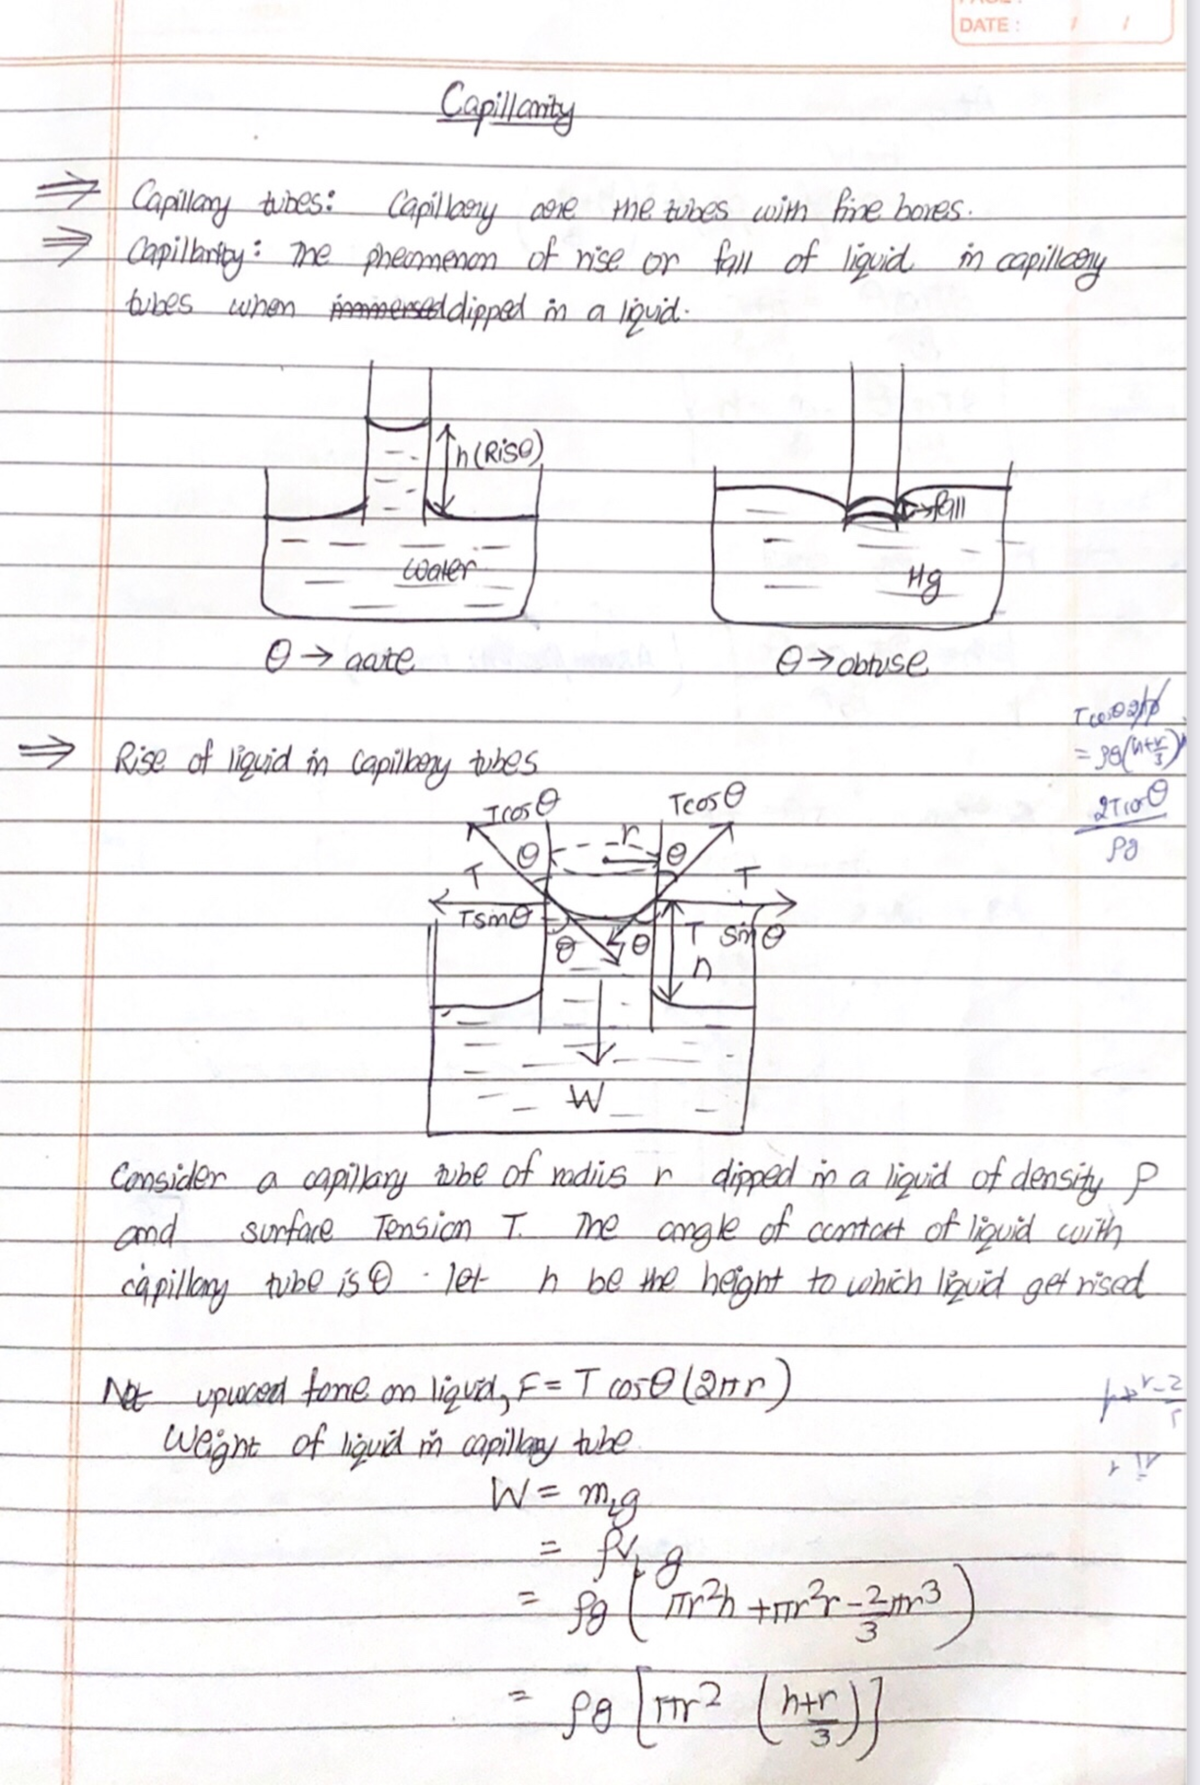 DATE :    /    /
Capillarity
⇒ Capillary tubes: Capillary are the tubes with fine bores.
⇒ Capillarity: The pheomenon of rise or fall of liquid in capillary
tubes when immersed dipped in a liquid.
h (Rise)
fall
Water
Hg
θ → acute
θ → obtuse
⇒ Rise of liquid in capillary tubes
Tcosθ
Tcosθ
r
θ
θ
T
T
Tsinθ
T sinθ
θ
θ
h
W
= ρg(h+r/3)
2Tcosθ
ρg
Consider a capillary tube of radius r dipped in a liquid of density ρ
and surface Tension T. The angle of contact of liquid with
capillary tube is θ. let h be the height to which liquid get rised
Net upward force on liquid, F = T cosθ (2πr)
Weight of liquid in capillary tube
W = mLg
= ρVL g
= ρg ( πr²h + πr²r - 2/3 πr³ )
= ρg [ πr² ( h+r/3 ) ]